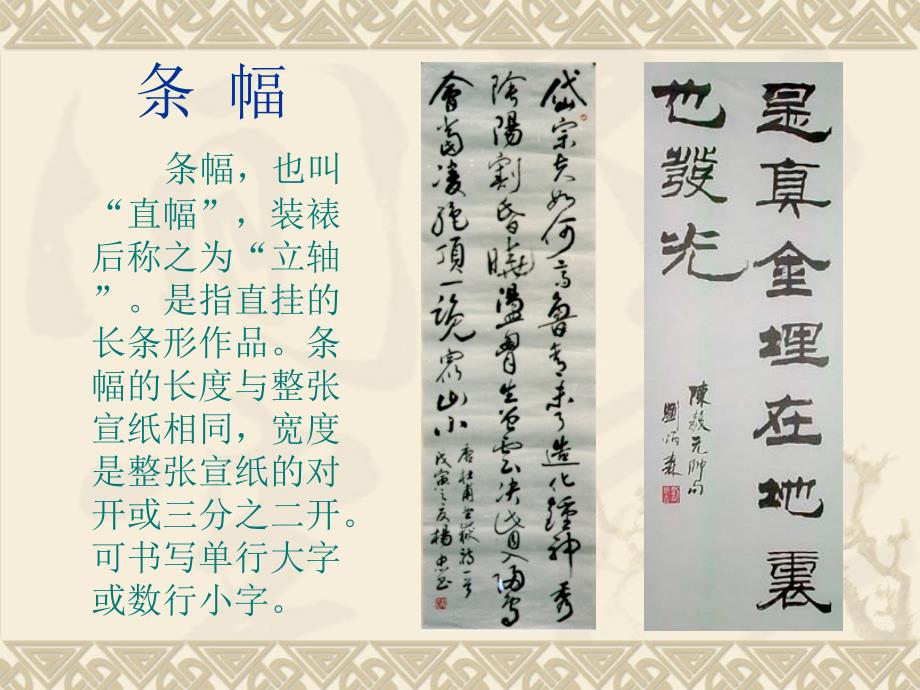 条 幅
条幅，也叫
“直幅”，装裱
后称之为“立轴
”。是指直挂的
长条形作品。条
幅的长度与整张
宣纸相同，宽度
是整张宣纸的对
开或三分之二开。
可书写单行大字
或数行小字。
岱宗夫如何齊魯青未了造化鍾神秀
陰陽割昏曉盪胸生曾雲决眥入歸鳥
會當凌絶頂一覽衆山小
唐杜甫望嶽詩一首
戊寅之夏楊忠
是真金埋在地裏
也發光
陳毅元帥句
劉炳森